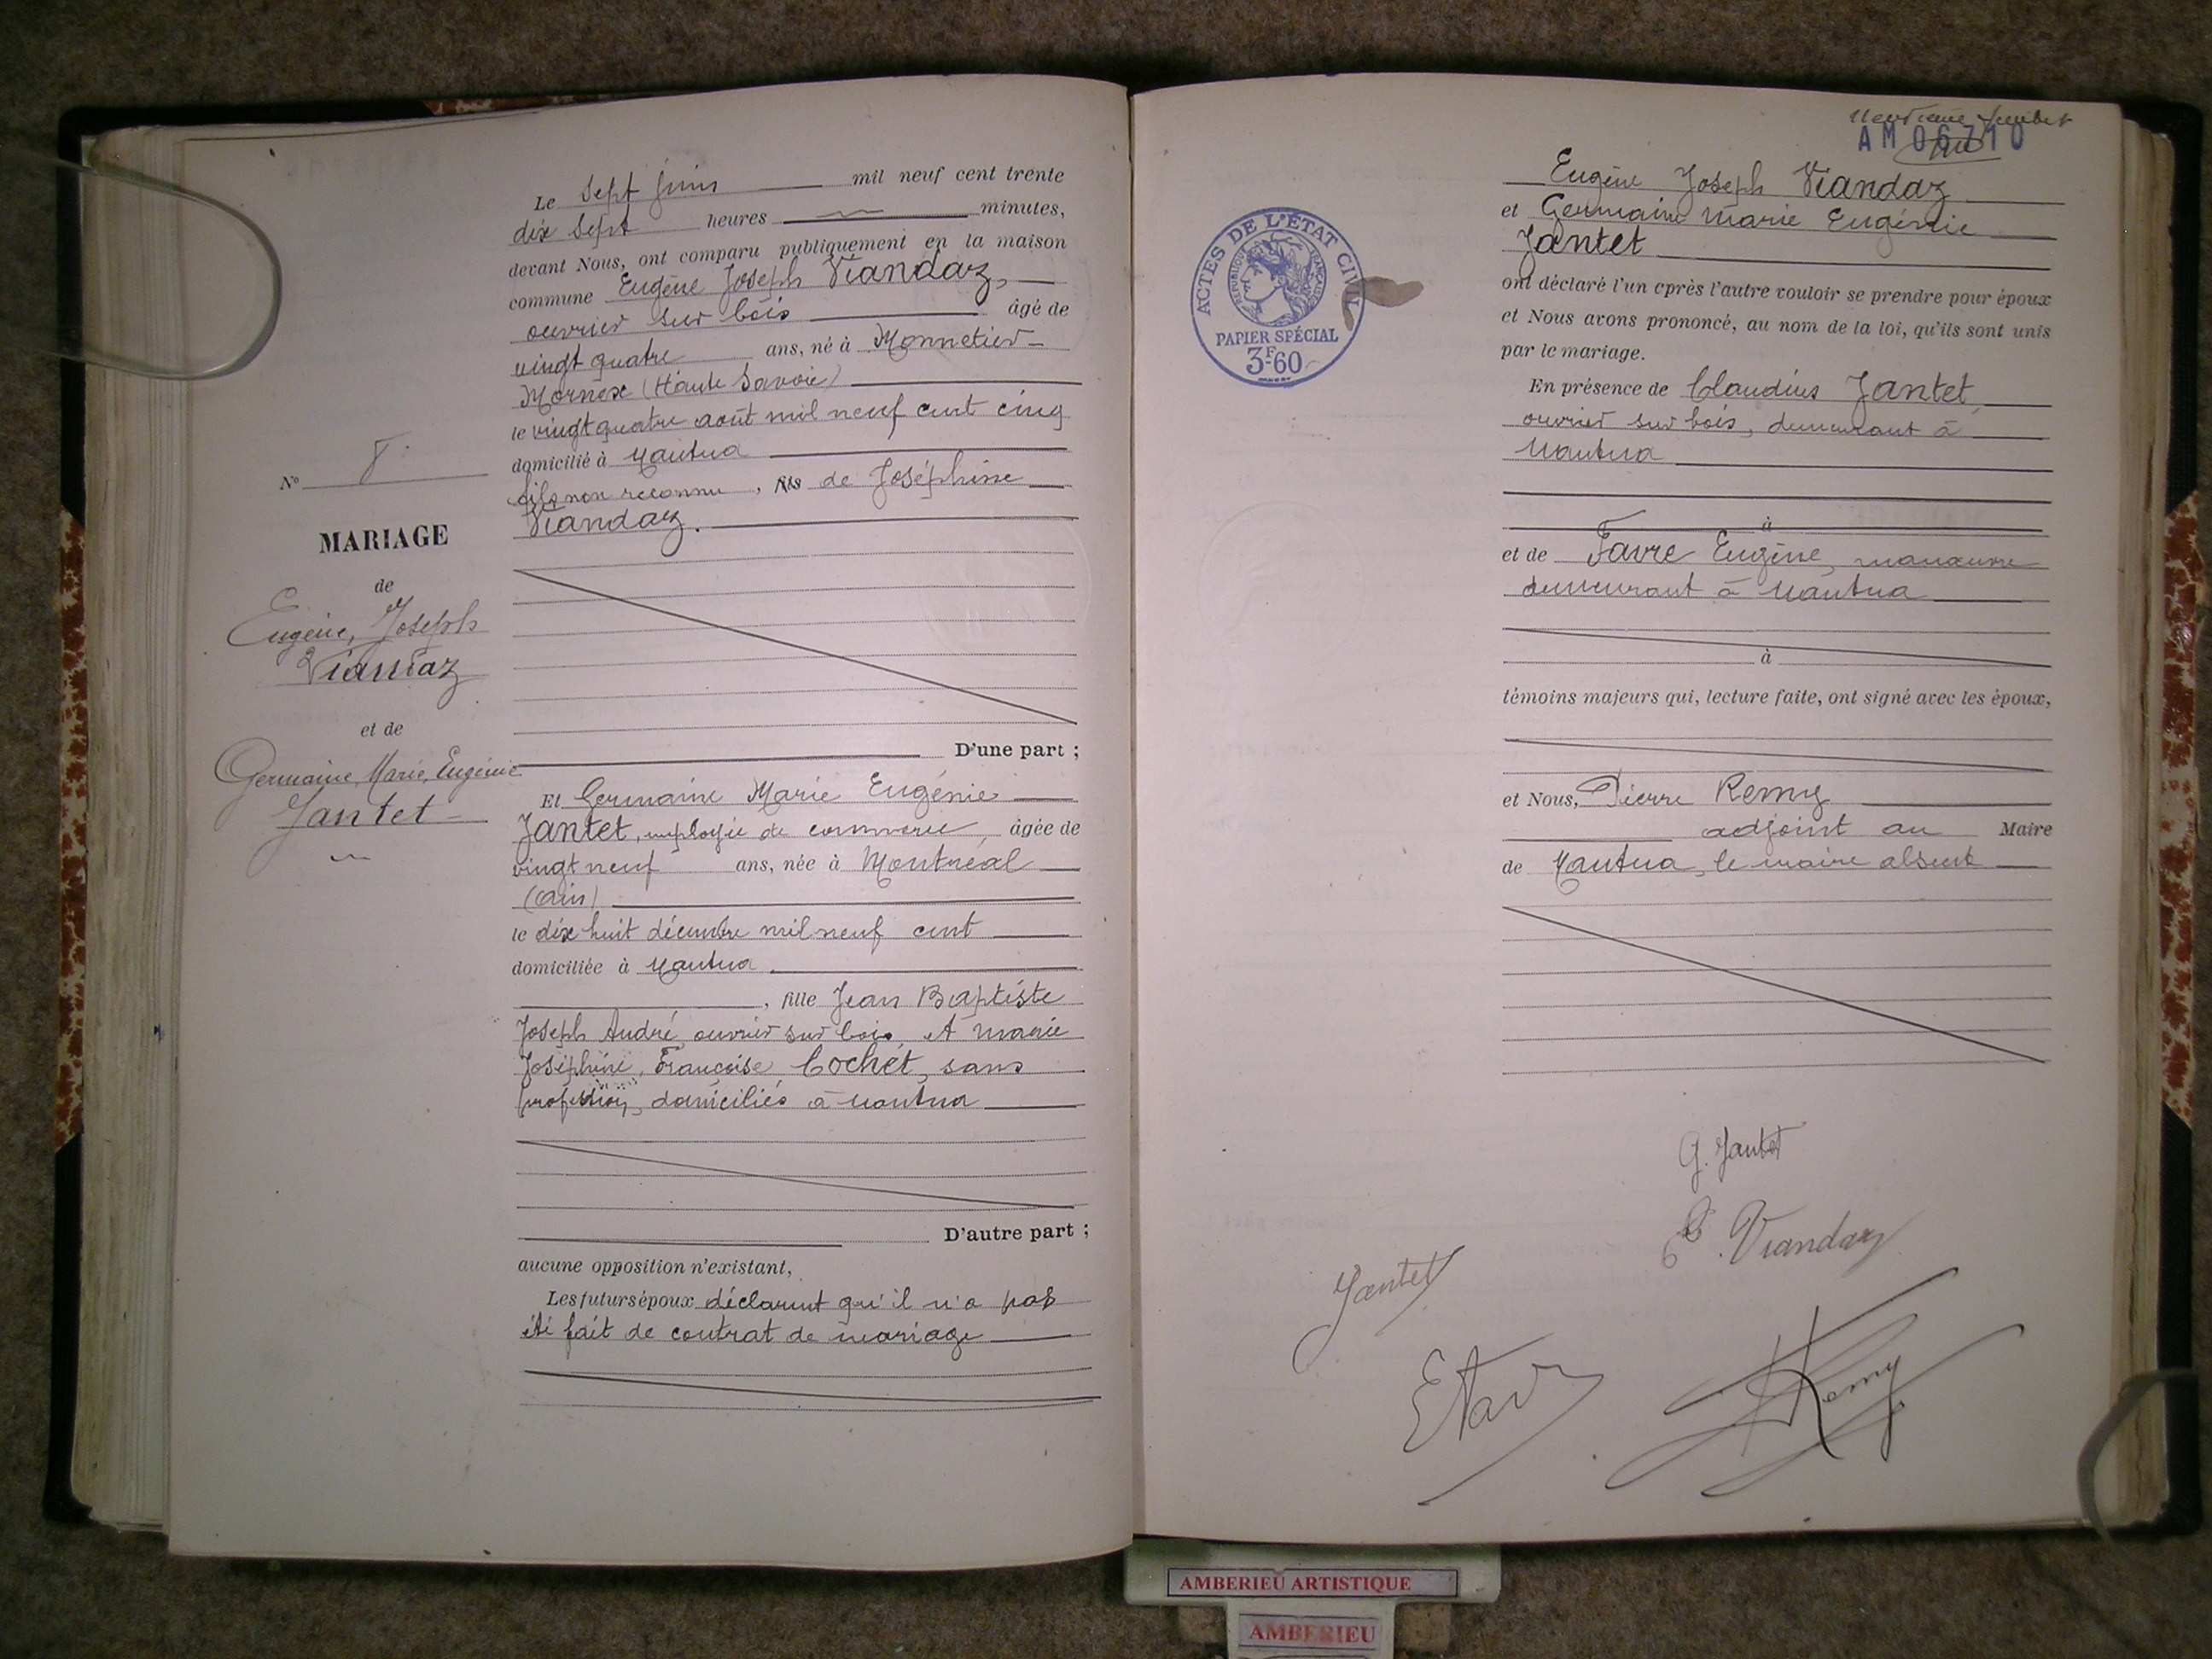 Le sept juin mil neuf cent trente
dix sept heures minutes,
devant Nous, ont comparu publiquement en la maison
commune Eugène Joseph Viandaz,
ouvrier sur bois âgé de
vingt quatre ans, né à Monnetier-
Mornex (Haute Savoie)
le vingt quatre août mil neuf cent cinq
domicilié à Nantua
fils non reconnu, fils de Joséphine
Viandaz.
D'une part ;
Et Germaine Marie Eugénie
Jantet, employée de commerce âgée de
vingt neuf ans, née à Montréal
(Ain)
le dix huit décembre mil neuf cent
domiciliée à Nantua
, fille Jean Baptiste
Joseph André, ouvrier sur bois, et Marie
Joséphine, Françoise Cochet, sans
profession, domiciliés à Nantua
D'autre part ;
aucune opposition n'existant,
Les futurs époux déclarent qu'il n'a pas
été fait de contrat de mariage
N° 8
MARIAGE
de
Eugène, Joseph
Viandaz
et de
Germaine, Marie, Eugénie
Jantet
AM 06710
ACTES DE L'ÉTAT CIVIL
RÉPUBLIQUE FRANÇAISE
PAPIER SPÉCIAL
3F60
Eugène Joseph Viandaz
et Germaine Marie Eugénie
Jantet
ont déclaré l'un après l'autre vouloir se prendre pour époux
et Nous avons prononcé, au nom de la loi, qu'ils sont unis
par le mariage.
En présence de Claudius Jantet,
ouvrier sur bois, demeurant à
Nantua
à
et de Favre Eugène, manœuvre
demeurant à Nantua
à
témoins majeurs qui, lecture faite, ont signé avec les époux,
et Nous, Pierre Remy
adjoint au Maire
de Nantua, le maire absent
G. Jantet
E. Viandaz
Jantet
E Favre
Remy
AMBERIEU ARTISTIQUE
AMBERIEU